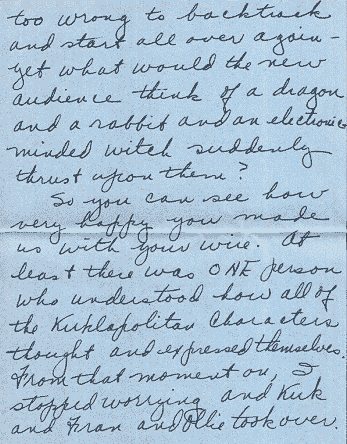 too wrong to backtrack
and start all over again -
yet what would the new
audience think of a dragon
and a rabbit and an electronic
minded witch suddenly
thrust upon them?
So you can see how
very happy you made
us with your wire. At
least there was ONE person
who understood how all of
the Kuklapolitan Characters
thought and expressed themselves.
From that moment on, I
stopped worrying and Kuk
and Fran and Ollie took over.